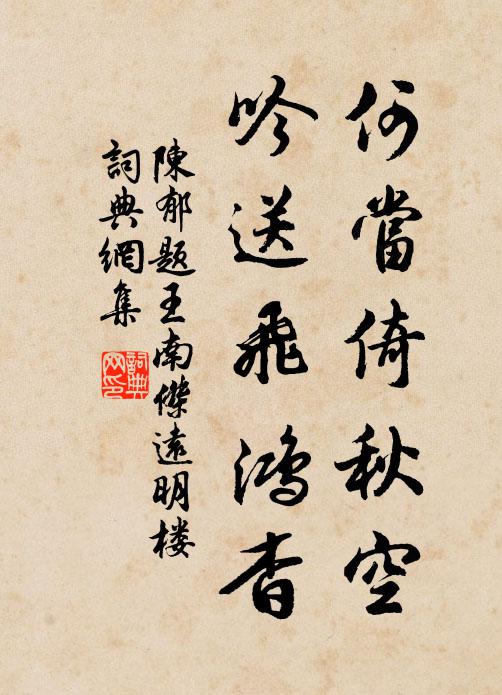 何當倚秋空
吟送飛鴻杳
陳郁題王南傑遠明楼
詞典網集
詞典網印